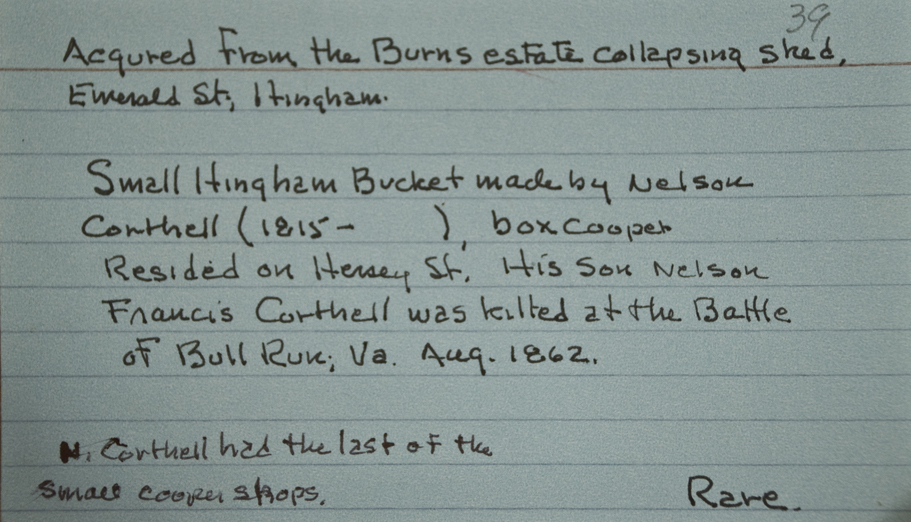 39
Acqured From the Burns estate collapsing shed,
Emerald St, Hingham.
Small Hingham Bucket made by Nelson
Corthell (1815- ), box Cooper
Resided on Hersey St. His Son Nelson
Francis Corthell was killed at the Battle
of Bull Run, Va. Aug. 1862.
N. Corthell had the last of the
small cooper shops.
Rare.